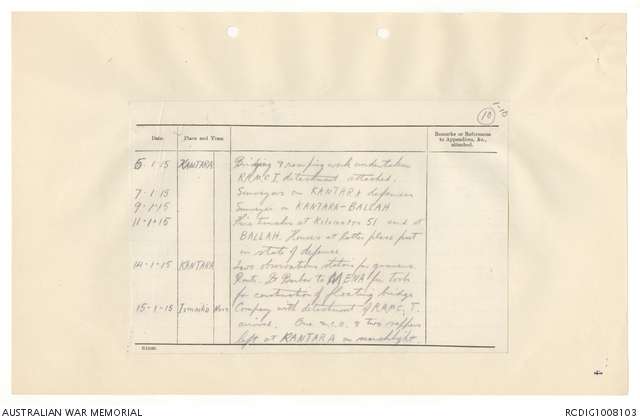 1-15
10
Date. Place and Time. Remarks or References to Appendices, &c., attached.
6-1-15 KANTARA Bridging & ramping work undertaken
detachment attached.
7-1-15 Surveyors on KANTARA defences
9-1-15 Surveyor on KANTARA-BALLAH
11-1-15 Fire trenches at Kilometre 51 and at
BALLAH. Houses at latter place put
in state of defence
14-1-15 KANTARA Two observation stations for gunners
to MENA for tools
for construction of floating bridge
15-1-15 Company with detachment of
arrived. One N.C.O. & two sappers
left at KANTARA on searchlight
AUSTRALIAN WAR MEMORIAL
RCDIG1008103